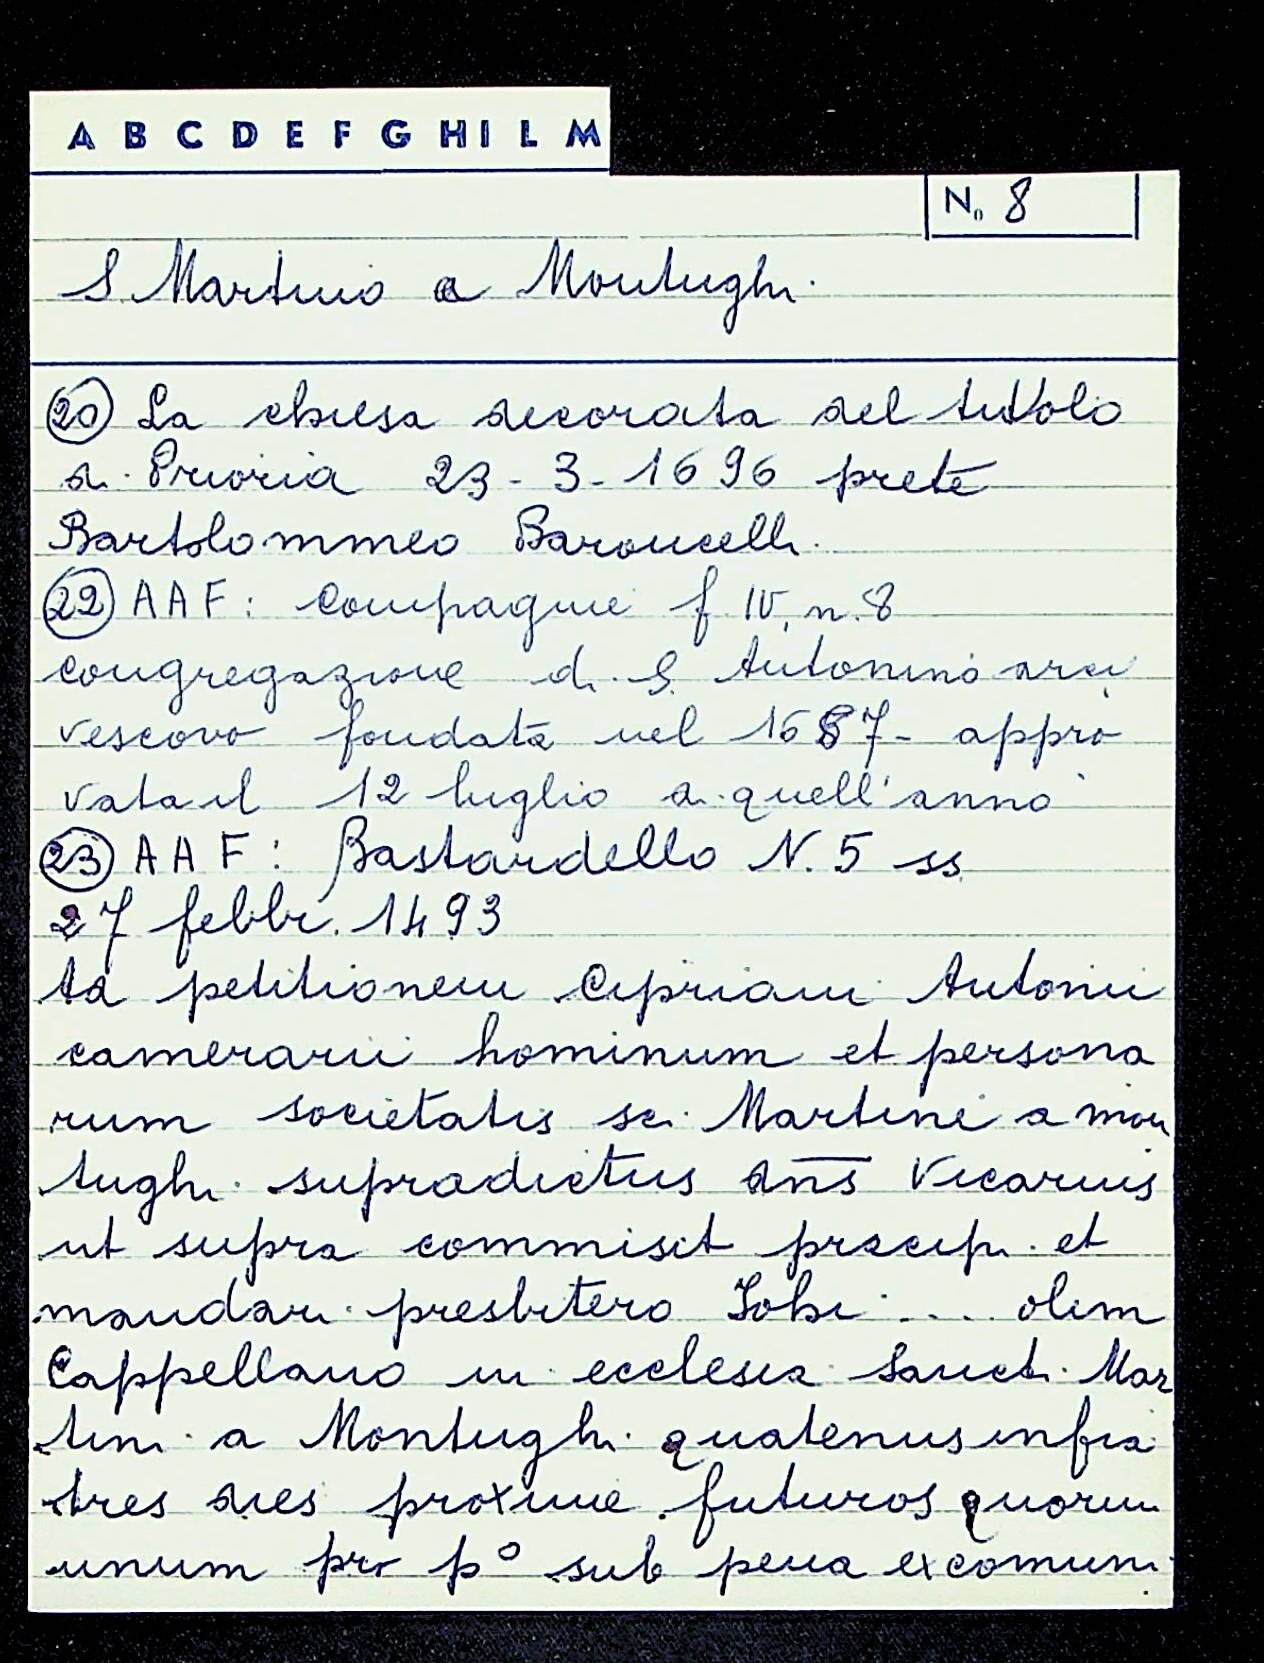 A B C D E F G H I L M
N. 8
S. Martino a Montughi
(20) La chiesa decorata del titolo
di Prioria 23-3-1696 prete
Bartolommeo Baroncelli.
(22) AAF: Compagnie f IV, n. 8
congregazione di S. Antonino arci
vescovo fondata nel 1687 - appro
vata il 12 luglio di quell'anno
(23) AAF: Bastardello N. 5 ss
27 febbr. 1493
Ad petitionem Cipriani Antonii
camerarii hominum et persona
rum societatis sci Martini a mon
tughi supradictus dns Vicarius
ut supra commisit precipi et
mandari presbitero Iohi .... olim
Cappellano in ecclesia Sancti Mar
tini a Montughi quatenus infra
tres dies proxime futuros quorum
unum pro p° sub pena excomuni